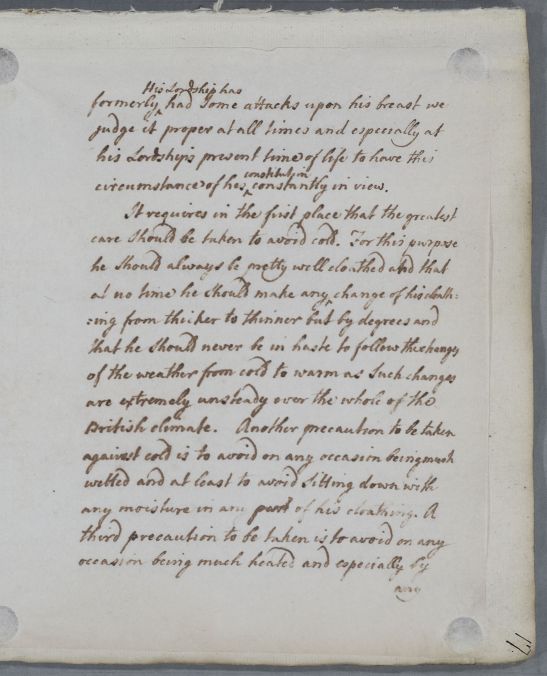 His Lordship has
formerly had some attacks upon his breast we
judge it proper at all times and especially at
his Lordships present time of life to have this
constitution
circumstance of his constantly in view.
It requires in the first place that the greatest
care should be taken to avoid cold. For this purpose
he should always be pretty well cloathed and that
at no time he should make any change of his cloath=
=ing from thicker to thinner but by degrees and
that he should never be in haste to follow the changes
of the weather from cold to warm as such changes
are extremely unsteady over the whole of the
British climate. Another precaution to be taken
against cold is to avoid on any occasion being much
wetted and at least to avoid sitting down with
any moisture in any part of his cloathing. A
third precaution to be taken is to avoid on any
occasion being much heated and especially by
any
17